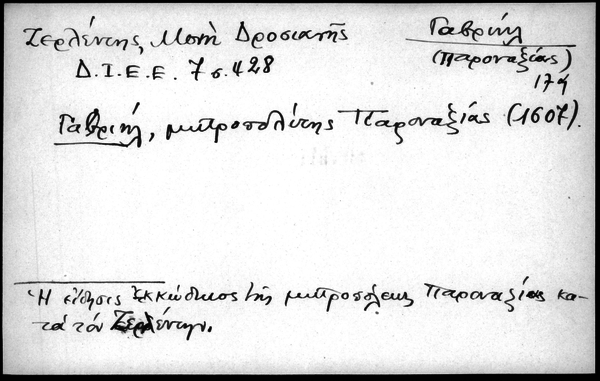 Ζερλέντης, Μονὴ Δροσιανῆς
Δ.Ι.Ε.Ε. 7 σ. 428
Γαβριὴλ
(Παροναξίας)
17
Γαβριήλ, μητροπολίτης Παροναξίας (1607).
Ἡ εἴδησις ἐκ κώδικος τῆς μητροπόλεως Παροναξίας κα-
τὰ τὸν Ζερλέντην.